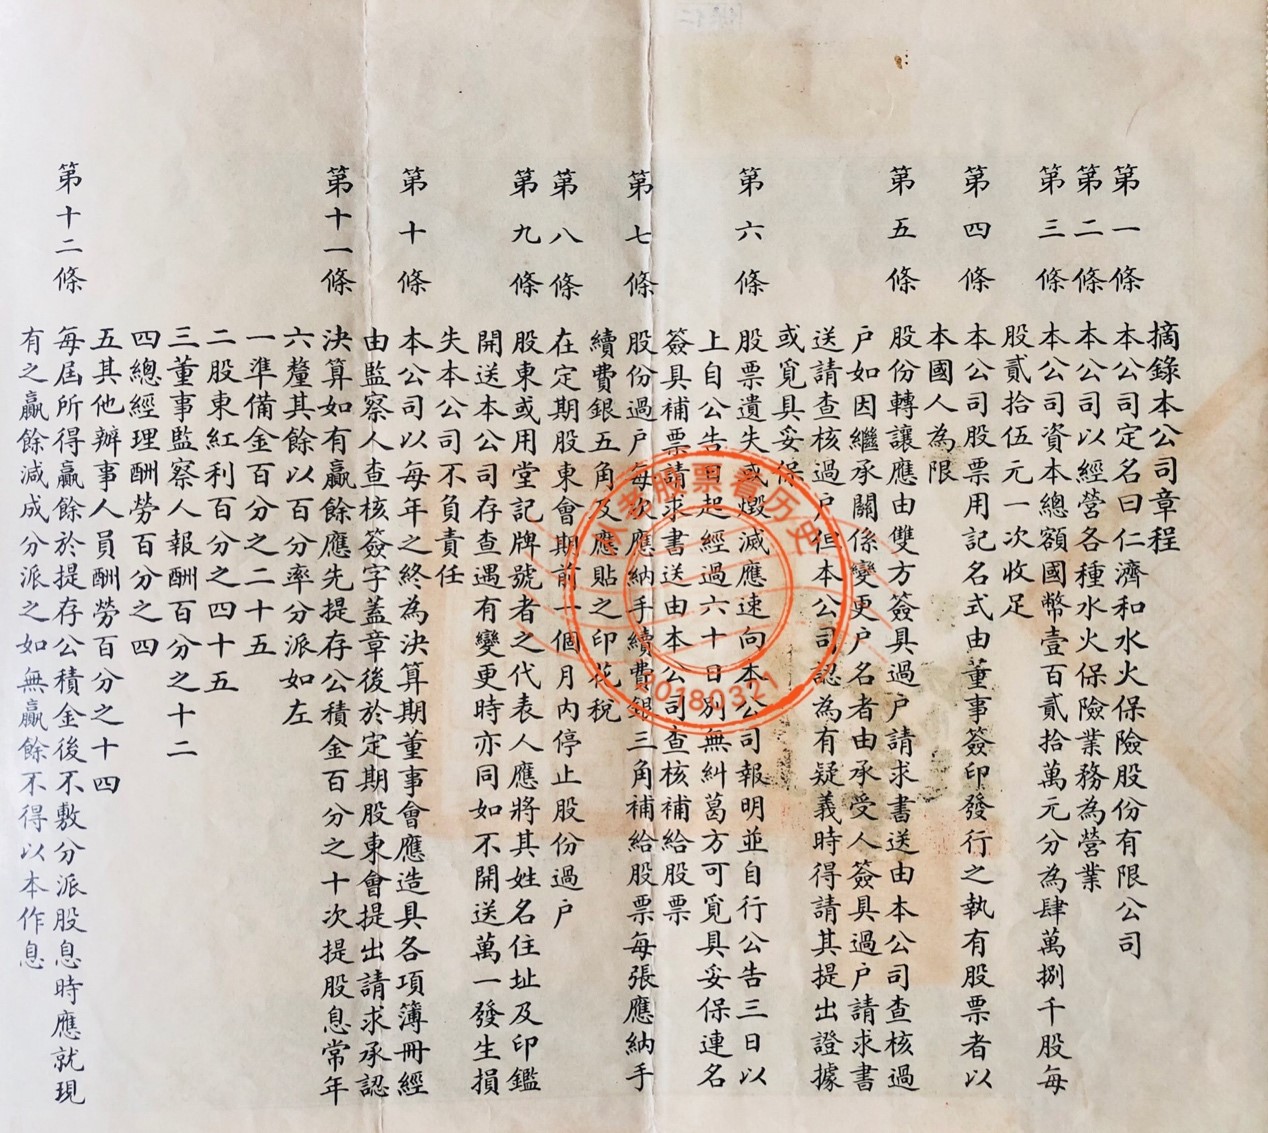 摘錄本公司章程
第一條 本公司定名曰仁濟和水火保險股份有限公司
第二條 本公司以經營各種水火保險業務為營業
第三條 本公司資本總額國幣壹百貳拾萬元分為肆萬捌千股每
股貳拾伍元一次收足
第四條 本公司股票用記名式由董事簽印發行之執有股票者以
本國人為限
第五條 股份轉讓應由雙方簽具過户請求書送由本公司查核過
户如因繼承關係變更户名者由承受人簽具過户請求書
送請查核過户但本公司認為有疑義時得請其提出證據
或覓具妥保
第六條 股票遺失或燬滅應速向本公司報明並自行公告三日以
上自公告日起經過六十日別無糾葛方可覓具妥保連名
簽具補票請求書送由本公司查核補給股票
第七條 股份過户每次應納手續費銀三角補給股票每張應納手
續費銀五角及應貼之印花稅
第八條 在定期股東會期前一個月內停止股份過户
第九條 股東或用堂記牌號者之代表人應將其姓名住址及印鑑
開送本公司存查遇有變更時亦同如不開送萬一發生損
失本公司不負責任
第十條 本公司以每年之終為決算期董事會應造具各項簿冊經
由監察人查核簽字蓋章後於定期股東會提出請求承認
第十一條 決算如有贏餘應先提存公積金百分之十次提股息常年
六釐其餘以百分率分派如左
一準備金百分之二十五
二股東紅利百分之四十五
三董事監察人報酬百分之十二
四總經理酬勞百分之四
五其他辦事人員酬勞百分之十四
第十二條 每屆所得贏餘於提存公積金後不敷分派股息時應就現
有之贏餘減成分派之如無贏餘不得以本作息
从老股票看历史
20180321